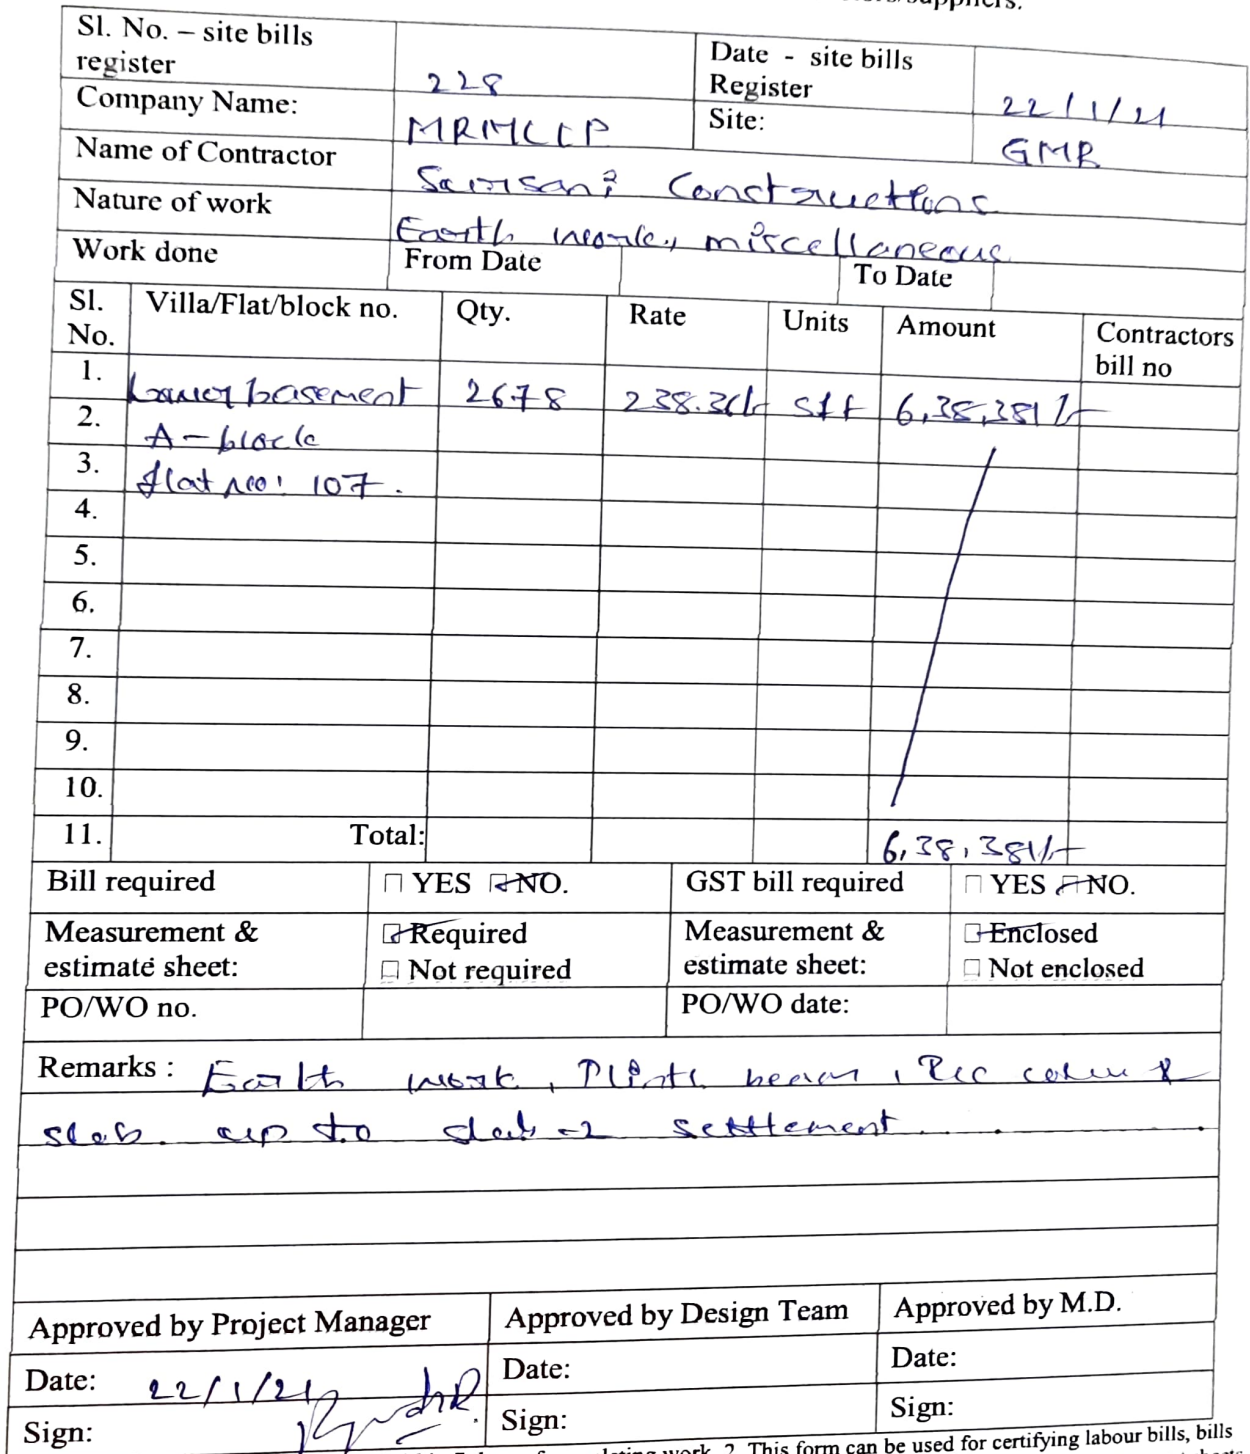 Sl. No. – site bills register 228 Date - site bills Register 22/1/21
Company Name: MRMLLP Site: GMR
Name of Contractor Sairsani Constructions
Nature of work Earth work, miscellaneous
Work done From Date To Date
Sl. No. Villa/Flat/block no. Qty. Rate Units Amount Contractors bill no
1. Lower basement 2678 238.38/- sft 6,38,381/-
2. A-block
3. flat no: 107.
4.
5.
6.
7.
8.
9.
10.
11. Total: 6,38,381/-
Bill required YES NO. GST bill required YES NO.
Measurement & estimate sheet: Required Not required Measurement & estimate sheet: Enclosed Not enclosed
PO/WO no. PO/WO date:
Remarks : Earth work, Plinth beam, Rcc colum &
slab up to slab-2 settlement
Approved by Project Manager Approved by Design Team Approved by M.D.
Date: 22/1/21 Date: Date:
Sign: Sign: Sign:
work. 2. This form can be used for certifying labour bills, bills